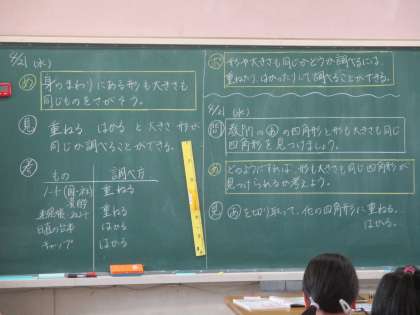 9/21 (水)
め 身のまわりにある形も大きさも
同じものをさがそう。
見 重ねる はかる と 大きさ 形が
同じか調べることができる。
考
もの 調べ方
ノート 重ねる
連絡帳 重ねる
はかる
キャップ はかる
ま 形や大きさも同じかどうか調べるには
重ねたり、はかったりして調べることができる。
9/21 (水)
問 の あ の四角形と形も大きさも同じ
四角形を見つけましょう。
め どのようにすれば、形も大きさも同じ四角形が
見つけられるか考えよう。
見 あ を切り取って、他の四角形に重ねる。
はかる。